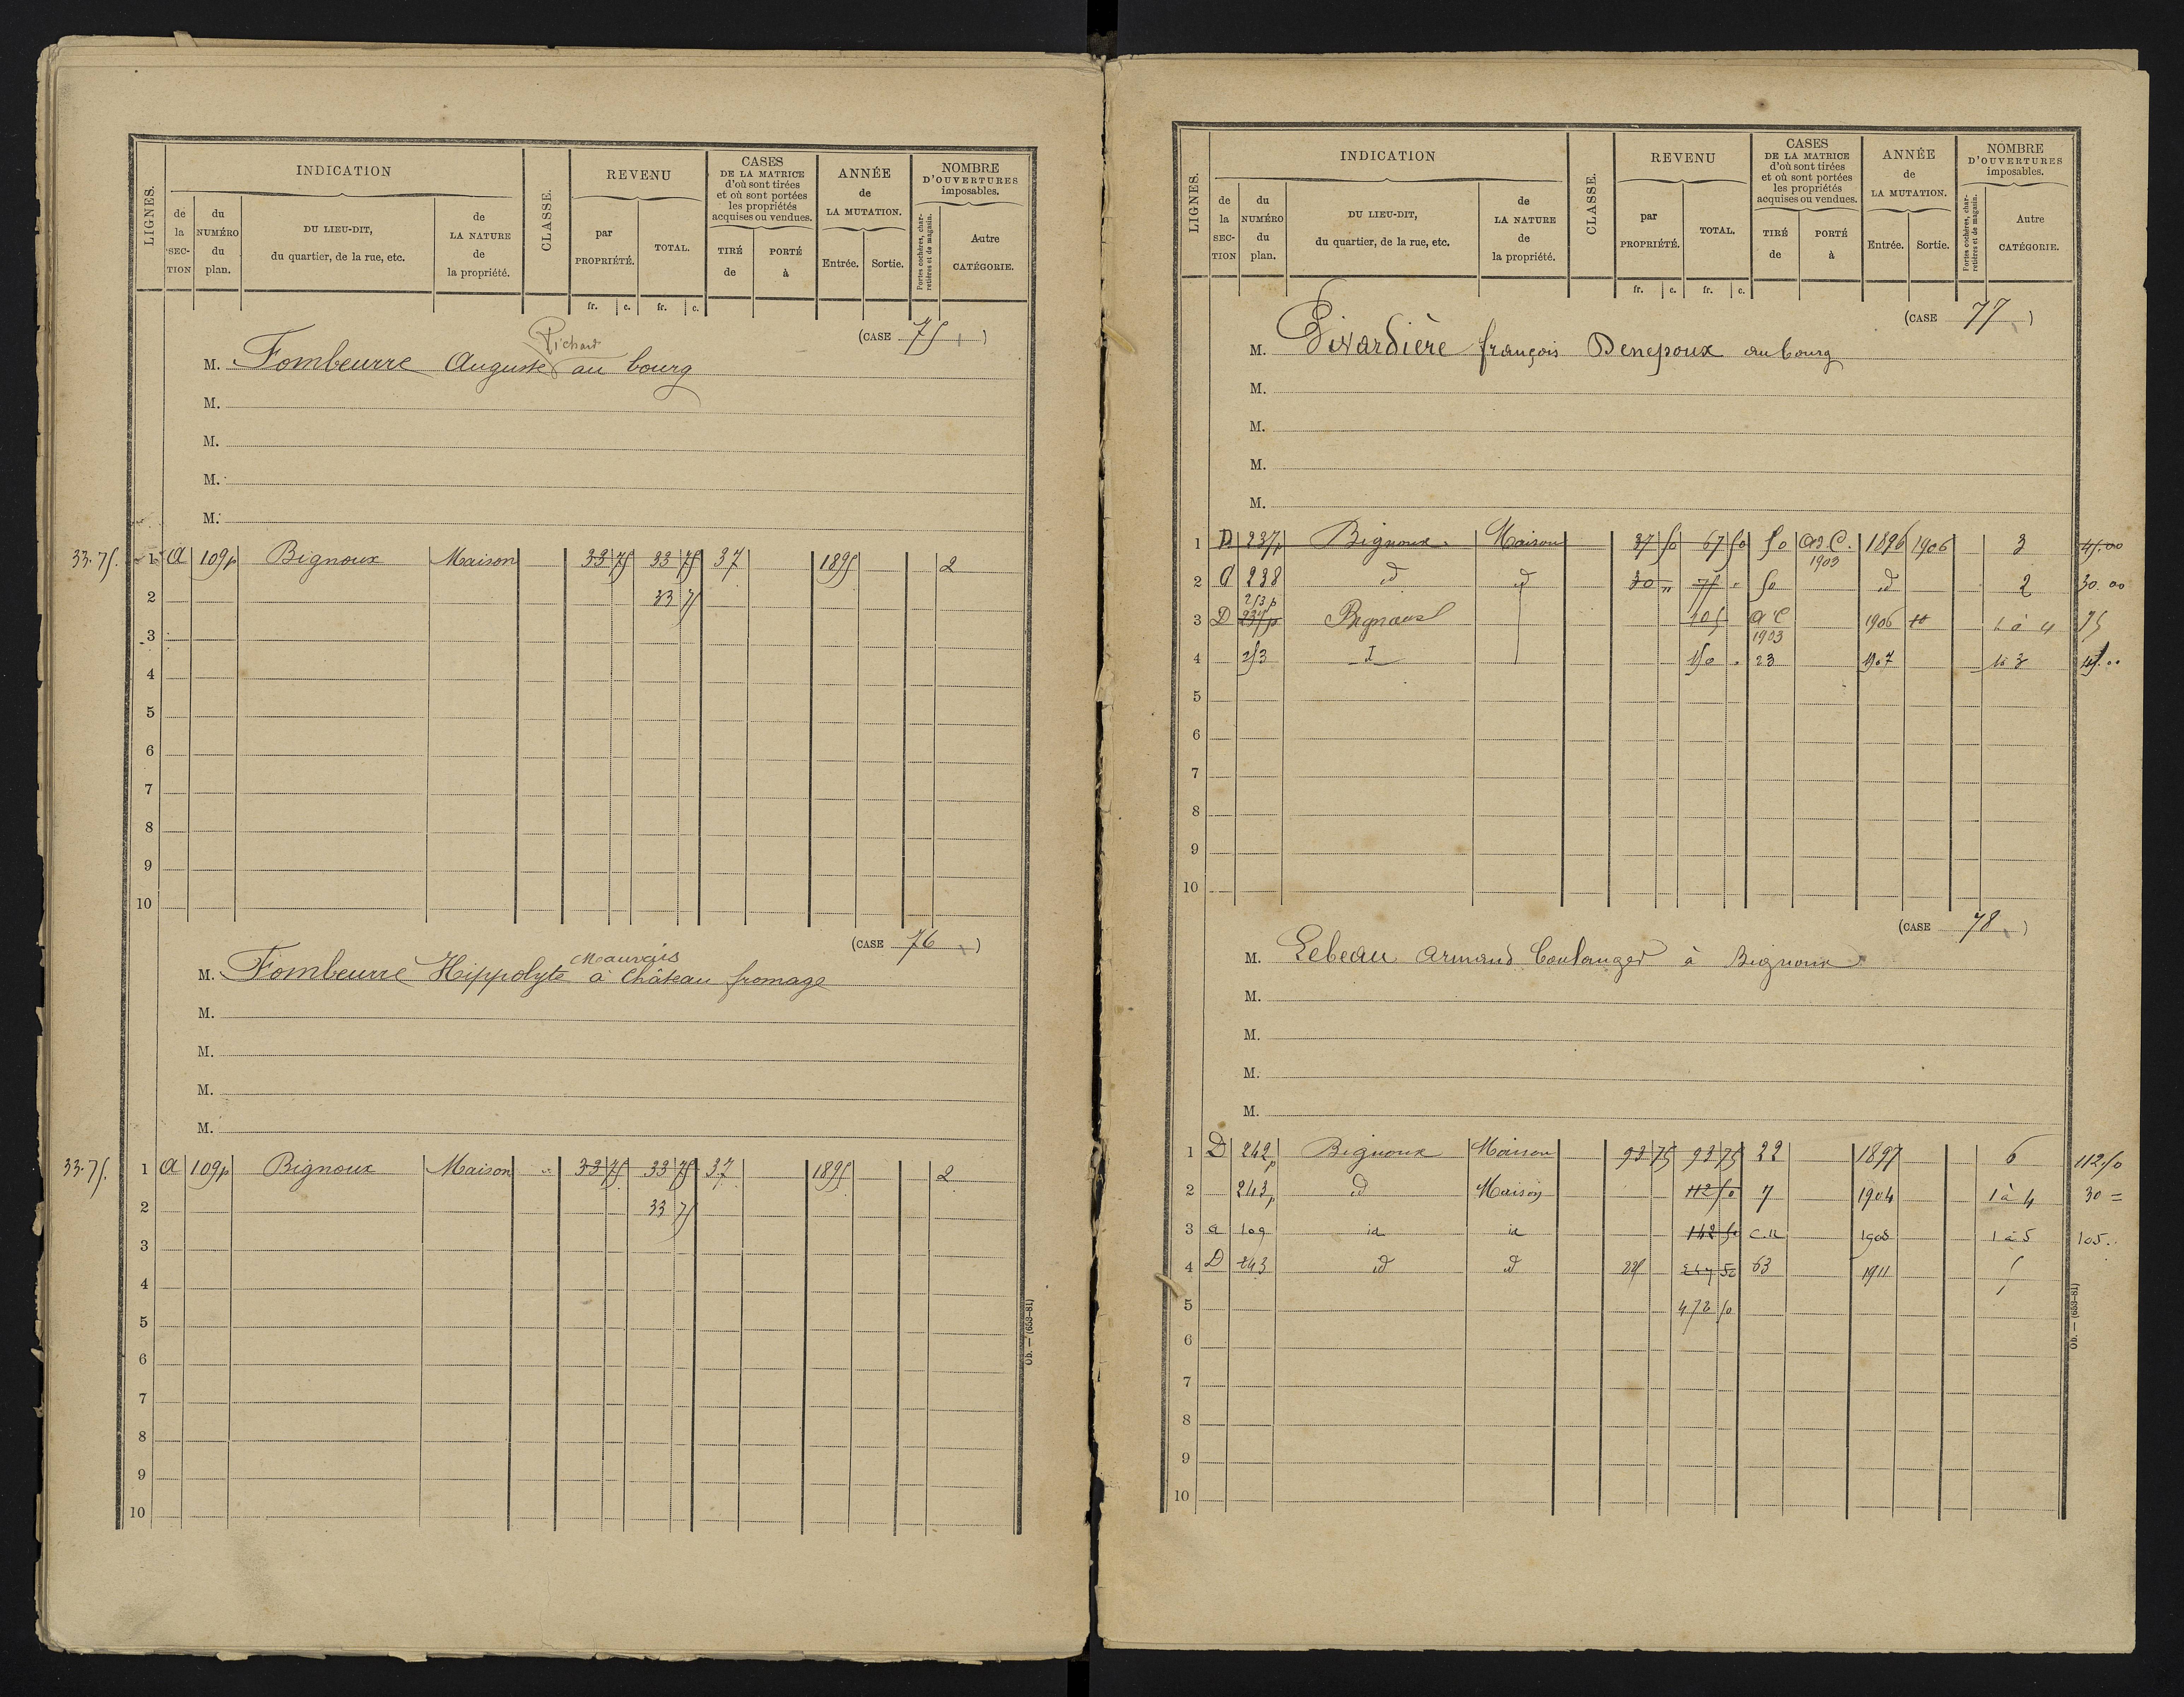 LIGNES. INDICATION CLASSE. REVENU CASES DE LA MATRICE d'où sont tirées et où sont portées les propriétés acquises ou vendues. ANNÉE de LA MUTATION. NOMBRE D'OUVERTURES imposables.
de la SECTION du NUMÉRO du plan. DU LIEU-DIT, du quartier, de la rue, etc. de LA NATURE de la propriété. par PROPRIÉTÉ. TOTAL. TIRÉ de PORTÉ à Entrée. Sortie. Portes cochères, charretières et de magasin. Autre CATÉGORIE.
fr. c. fr. c.
(CASE 75)
Pichard
M. Fombeurre Auguste au bourg
M.
M.
M.
M.
33.75. 1 A 109p Bignoux Maison 33 75 33 75 37 1895 2
2 33 75
3
4
5
6
7
8
9
10
(CASE 76)
Mauvais
M. Fombeurre Hippolyte à Château fromage
M.
M.
M.
M.
33.75. 1 A 109p Bignoux Maison " 33 75 33 75 37 1895 2
2 33 75
3
4
5
6
7
8
9
10
Ob. — (653-81)
LIGNES. INDICATION CLASSE. REVENU CASES DE LA MATRICE d'où sont tirées et où sont portées les propriétés acquises ou vendues. ANNÉE de LA MUTATION. NOMBRE D'OUVERTURES imposables.
de la SECTION du NUMÉRO du plan. DU LIEU-DIT, du quartier, de la rue, etc. de LA NATURE de la propriété. par PROPRIÉTÉ. TOTAL. TIRÉ de PORTÉ à Entrée. Sortie. Portes cochères, charretières et de magasin. Autre CATÉGORIE.
fr. c. fr. c.
(CASE 77)
M. Pivardière françois Denepoux au bourg
M.
M.
M.
M.
1 D 237p Bignoux Maison 37 50 67 50 50 1896 1906 3 45.00
1903
2 238 d d 30 " 75 " 50 d 2 30.00
253p
3 D 237p Bignoux 105 1906 1 à 4 75
1903
4 253 150 . 23 1907 1 à 3 45.00
5
6
7
8
9
10
(CASE 78)
M. Lebeau armand boulanger à Bignoux
M.
M.
M.
M.
1 D 242p Bignoux Maison 93 75 93 75 22 1897 6 112/50
2 243p d Maison 112 50 7 1904 1 à 4 30 =
3 a 109 id id 142 50 1908 1 à 5 105.
4 D 243 d d 225 247 50 63 1911
5 472 50
6
7
8
9
10
Ob. — (653-81)